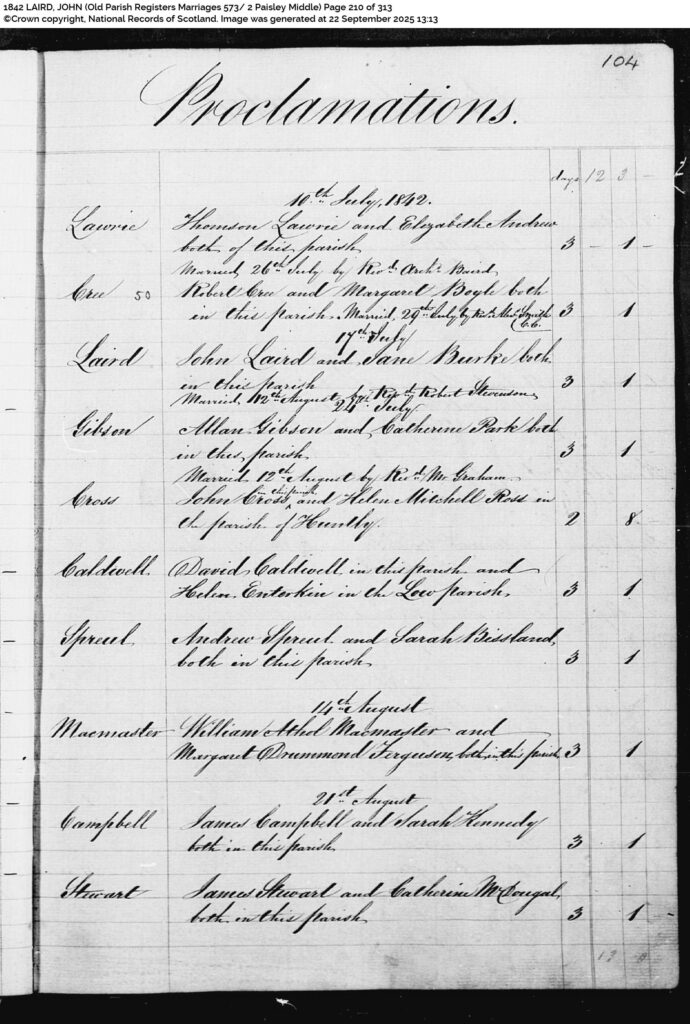 1842 LAIRD, JOHN (Old Parish Registers Marriages 573/ 2 Paisley Middle) Page 210 of 313
©Crown copyright, National Records of Scotland. Image was generated at 22 September 2025 13:13
104
Proclamations.
days 12 3
10th July, 1842.
Lawrie Thomson Lawrie and Elizabeth Andrew
both of this parish 3 - 1 -
Married, 26th July by Revd. Archd. Baird
Cree 50 Robert Cree and Margaret Boyle both
in this parish. Married, 29th July by Revd. Alexr. Smith 3 1
C.C.
17th July
Laird John Laird and Jane Burke both
in this parish 3 1
Married, 12th August, by Revd. Robert Stevenson
24th July
Gibson Allan Gibson and Catherine Park both
in this parish. 3 1
Married 12th August by Revd. Mr Graham
Cross John Cross in this parish and Helen Mitchell Ross in
the parish of Huntly. 2 8
Caldwell David Caldwell in this parish and
Helen Entorkin in the Low parish. 3 1
Spreul Andrew Spreul and Sarah Bissland,
both in this parish 3 1
14th August
Macmaster William Athol Macmaster and
Margaret Drummond Ferguson, both in this parish 3 1
21st August
Campbell James Campbell and Sarah Kennedy
both in this parish 3 1
Stewart James Stewart and Catherine McDougal,
both in this parish 3 1